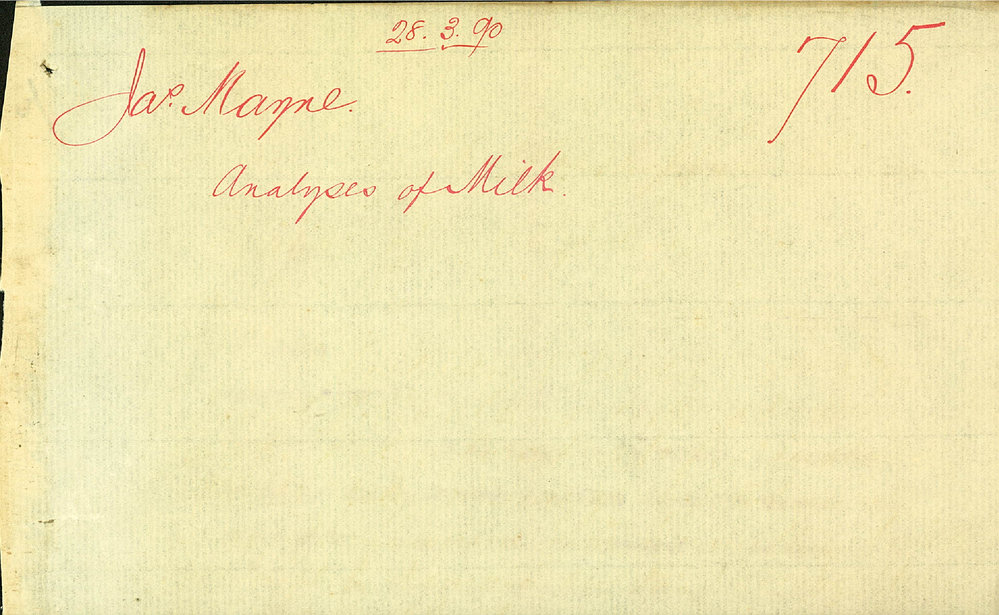 28. 3. 90
715.
Jas. Mayne.
Analyses of Milk.